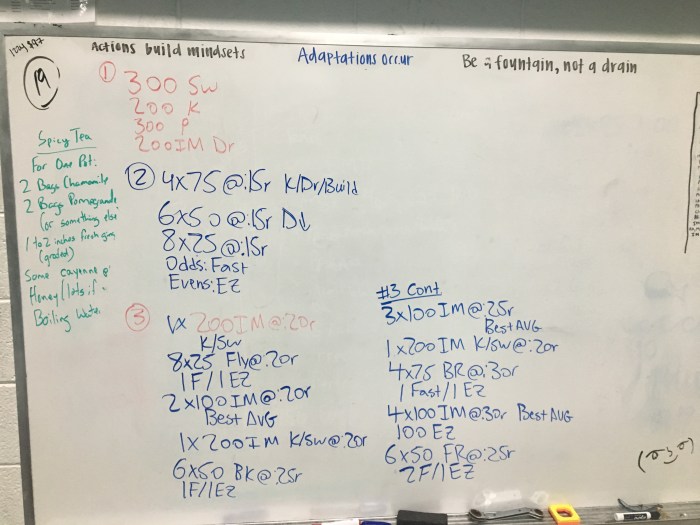 Actions build mindsets
Adaptations occur
Be a fountain, not a drain
19
Spicy Tea
For One Pot:
2 Bags Chamomile
2 Bags Pomegranate
(or something else
1 to 2 inches fresh
(grated)
Some cayenne
Honey/lots if
Boiling Water
① 300 Sw
200 K
300 P
200IM Dr
② 4x75@:15r K/Dr/Build
6x50@:15r D↓
8x25@:15r
Odds: Fast
Evens: EZ
③ 1x 200IM@:20r
K/Sw
8x25 Fly@:20r
1F/1EZ
2x100IM@:20r
Best AVG
1x200IM K/Sw@:20r
6x50 BK@:25r
1F/1EZ
#3 Cont
3x100IM@:25r
Best AVG
1x200IM K/Sw@:20r
4x75 BR@:30r
1 Fast/1 EZ
4x100IM@:30r Best AVG
100 EZ
6x50 FR@:25r
2F/1EZ